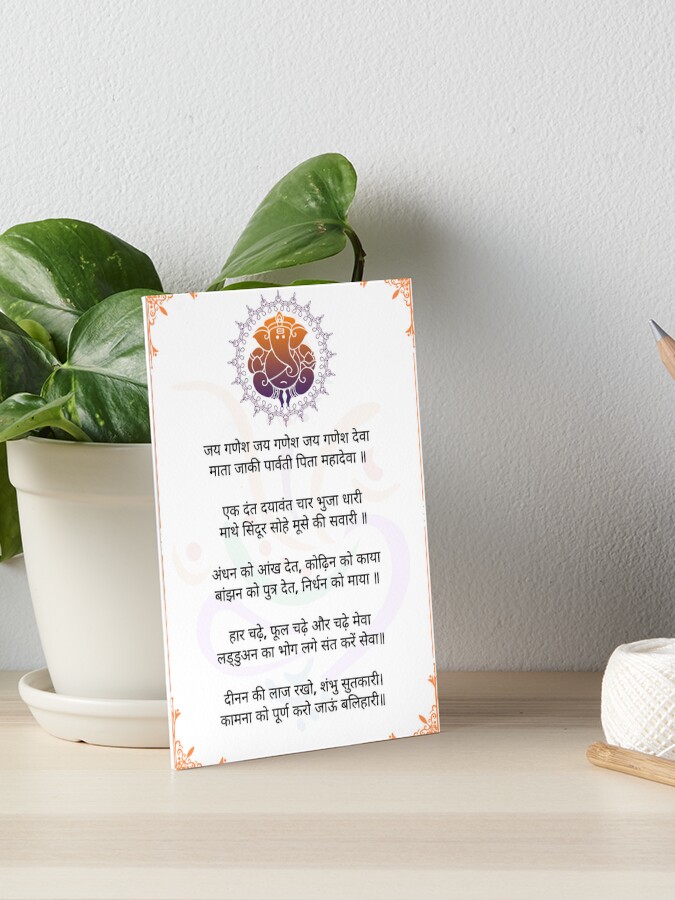 जय गणेश जय गणेश जय गणेश देवा
माता जाकी पार्वती पिता महादेवा ॥
एक दंत दयावंत चार भुजा धारी
माथे सिंदूर सोहे मूसे की सवारी ॥
अंधन को आंख देत, कोढ़िन को काया
बांझन को पुत्र देत, निर्धन को माया ॥
हार चढ़े, फूल चढ़े और चढ़े मेवा
लड्डुअन का भोग लगे संत करें सेवा॥
दीनन की लाज रखो, शंभु सुतकारी।
कामना को पूर्ण करो जाऊं बलिहारी॥